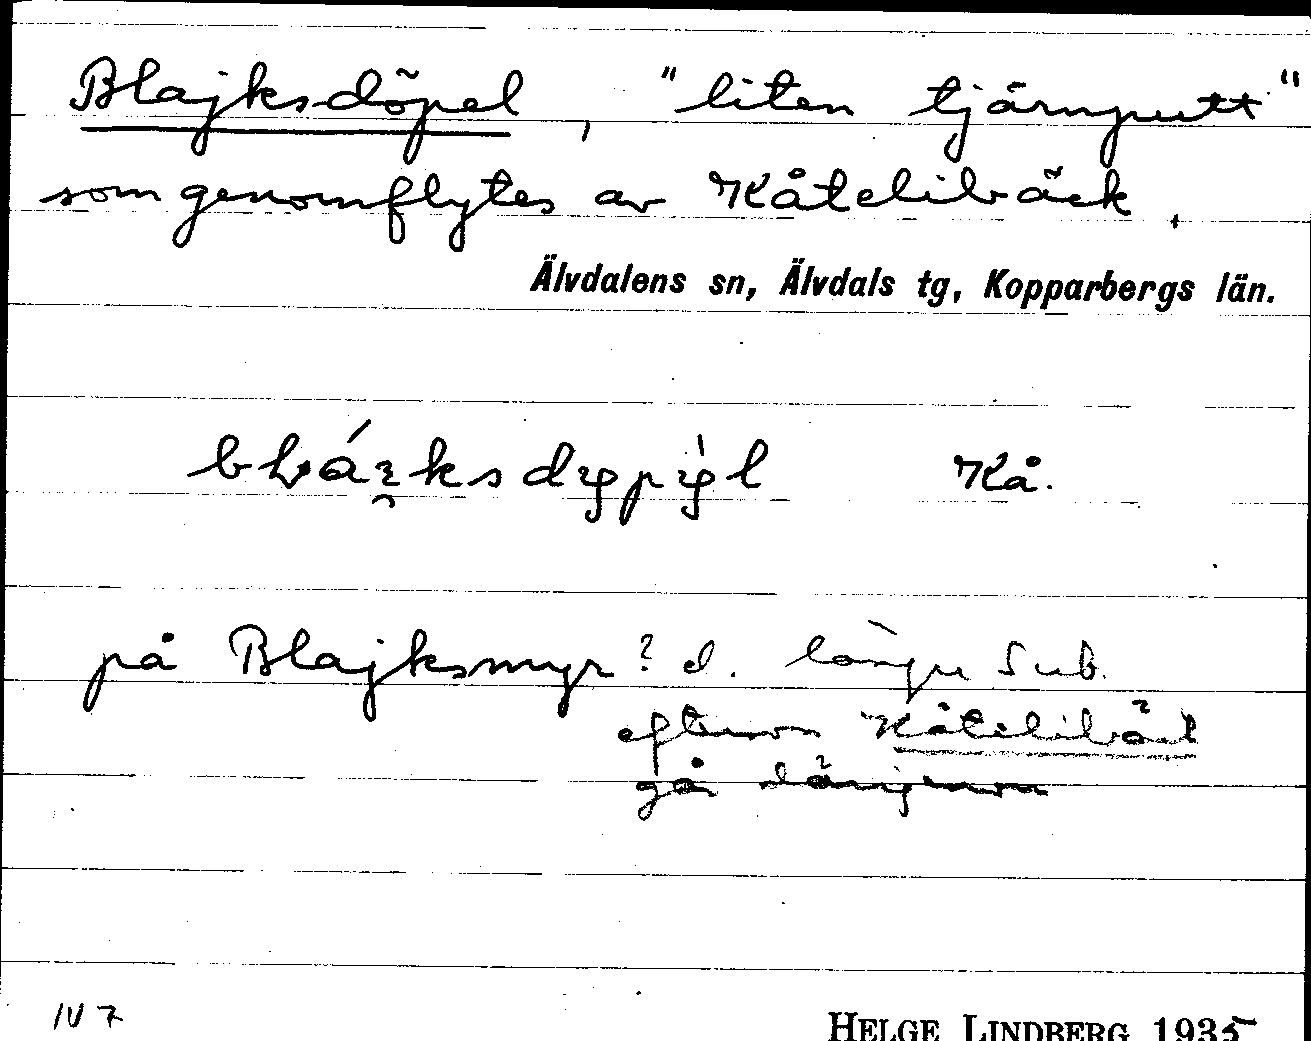 Blajksdöpel, "liten tjärnputt"
som genomflytes av Kåtelibäck.
Älvdalens sn, Älvdals tg, Kopparbergs län.
Kå.
på Blajksmyr? d. längre S ub.
eftersom Kåtelibäck
går därigenom
IV 7
HELGE LINDBERG 1935